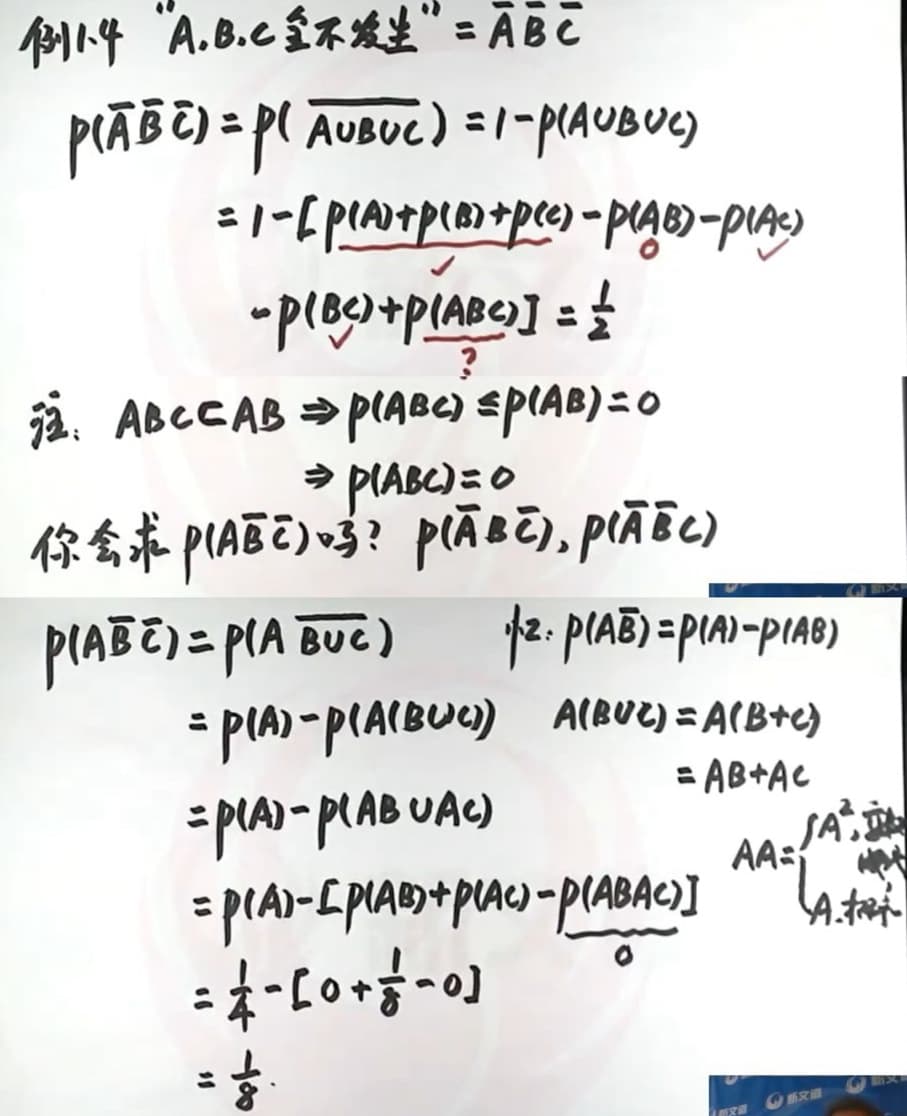 例1.4 "A.B.C全不发生" = A̅ B̅ C̅
P(A̅ B̅ C̅) = P( \overline{A∪B∪C} ) = 1-P(A∪B∪C)
= 1-[P(A)+P(B)+P(C)-P(AB)-P(AC)
0
✓
✓
-P(BC)+P(ABC)] = 1/2
✓
?
注: ABC⊂AB ⇒ P(ABC) ≤ P(AB) = 0
⇒ P(ABC) = 0
你会求 P(AB̅ C̅) 吗? P(A̅ B C̅), P(A̅ B̅ C)
新文
P(AB̅ C̅) = P(A \overline{B∪C})
= P(A)-P(A(B∪C))
= P(A)-P(AB∪AC)
= P(A)-[P(AB)+P(AC)-P(ABAC)]
0
= 1/4-[0+1/8-0]
= 1/8.
P(AB̅)=P(A)-P(AB)
A(B∪C) = A(B+C)
= AB+AC
AA= { A²,
A.
新文道
新文道
新文